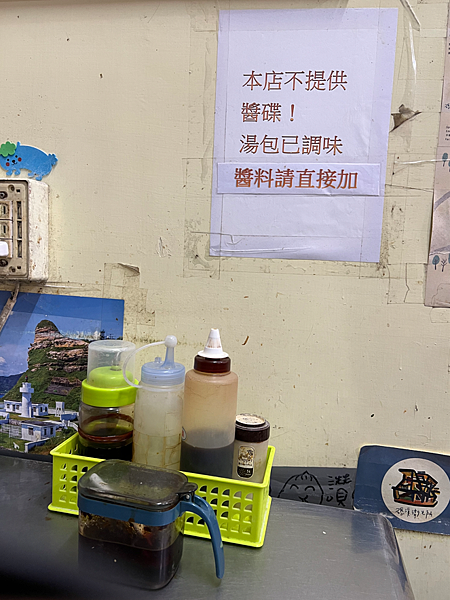 本店不提供
醬碟！
湯包已調味
醬料請直接加
讚